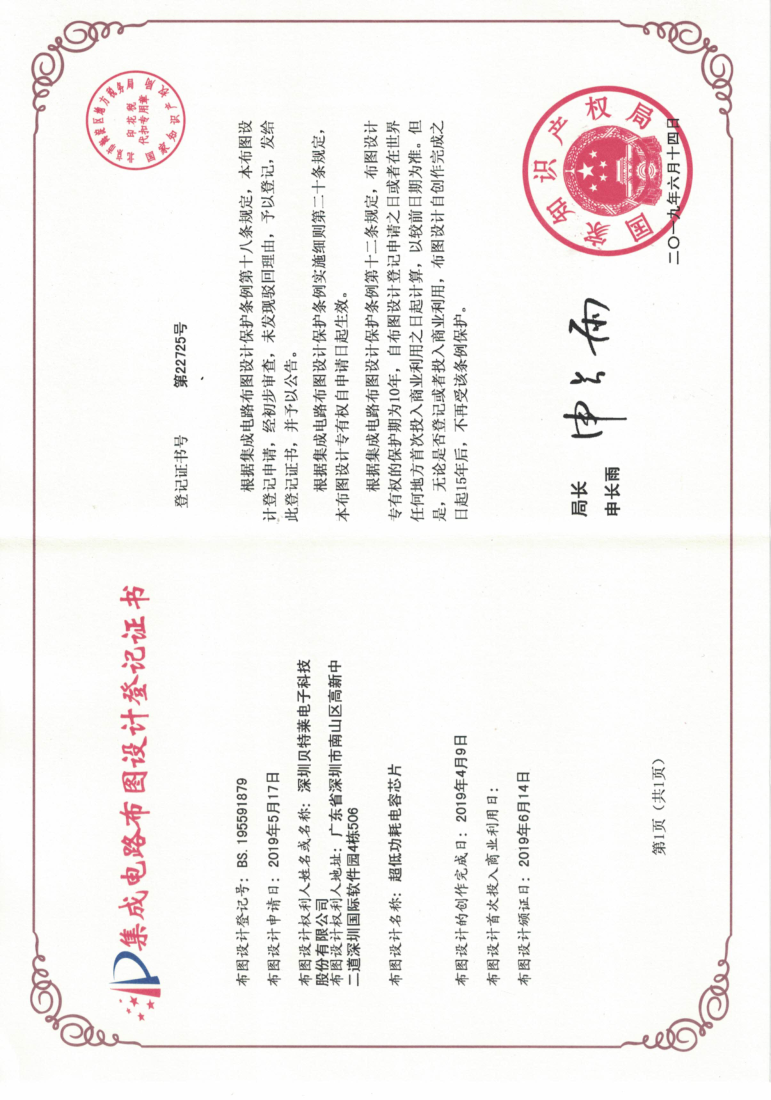 集成电路布图设计登记证书
布图设计登记号：BS.195591879
布图设计申请日：2019年5月17日
布图设计权利人姓名或名称：深圳贝特莱电子科技
股份有限公司
布图设计权利人地址：广东省深圳市南山区高新中
二道深圳国际软件园4栋506
布图设计名称：超低功耗电容芯片
布图设计的创作完成日：2019年4月9日
布图设计首次投入商业利用日：
布图设计颁证日：2019年6月14日
第1页（共1页）
登记证书号 第22725号
根据集成电路布图设计保护条例第十八条规定，本布图设
计登记申请，经初步审查，未发现驳回理由，予以登记，发给
此登记证书，并予以公告。
根据集成电路布图设计保护条例实施细则第二十条规定，
本布图设计专有权自申请日起生效。
根据集成电路布图设计保护条例第十二条规定，布图设计
专有权的保护期为10年，自布图设计登记申请之日或者在世界
任何地方首次投入商业利用之日起计算，以较前日期为准。但
是，无论是否登记或者投入商业利用，布图设计自创作完成之
日起15年后，不再受该条例保护。
局长
申长雨
申长雨
国家知识产权局
二〇一九年六月十四日
印花税
代扣专用章
国家知识产权局